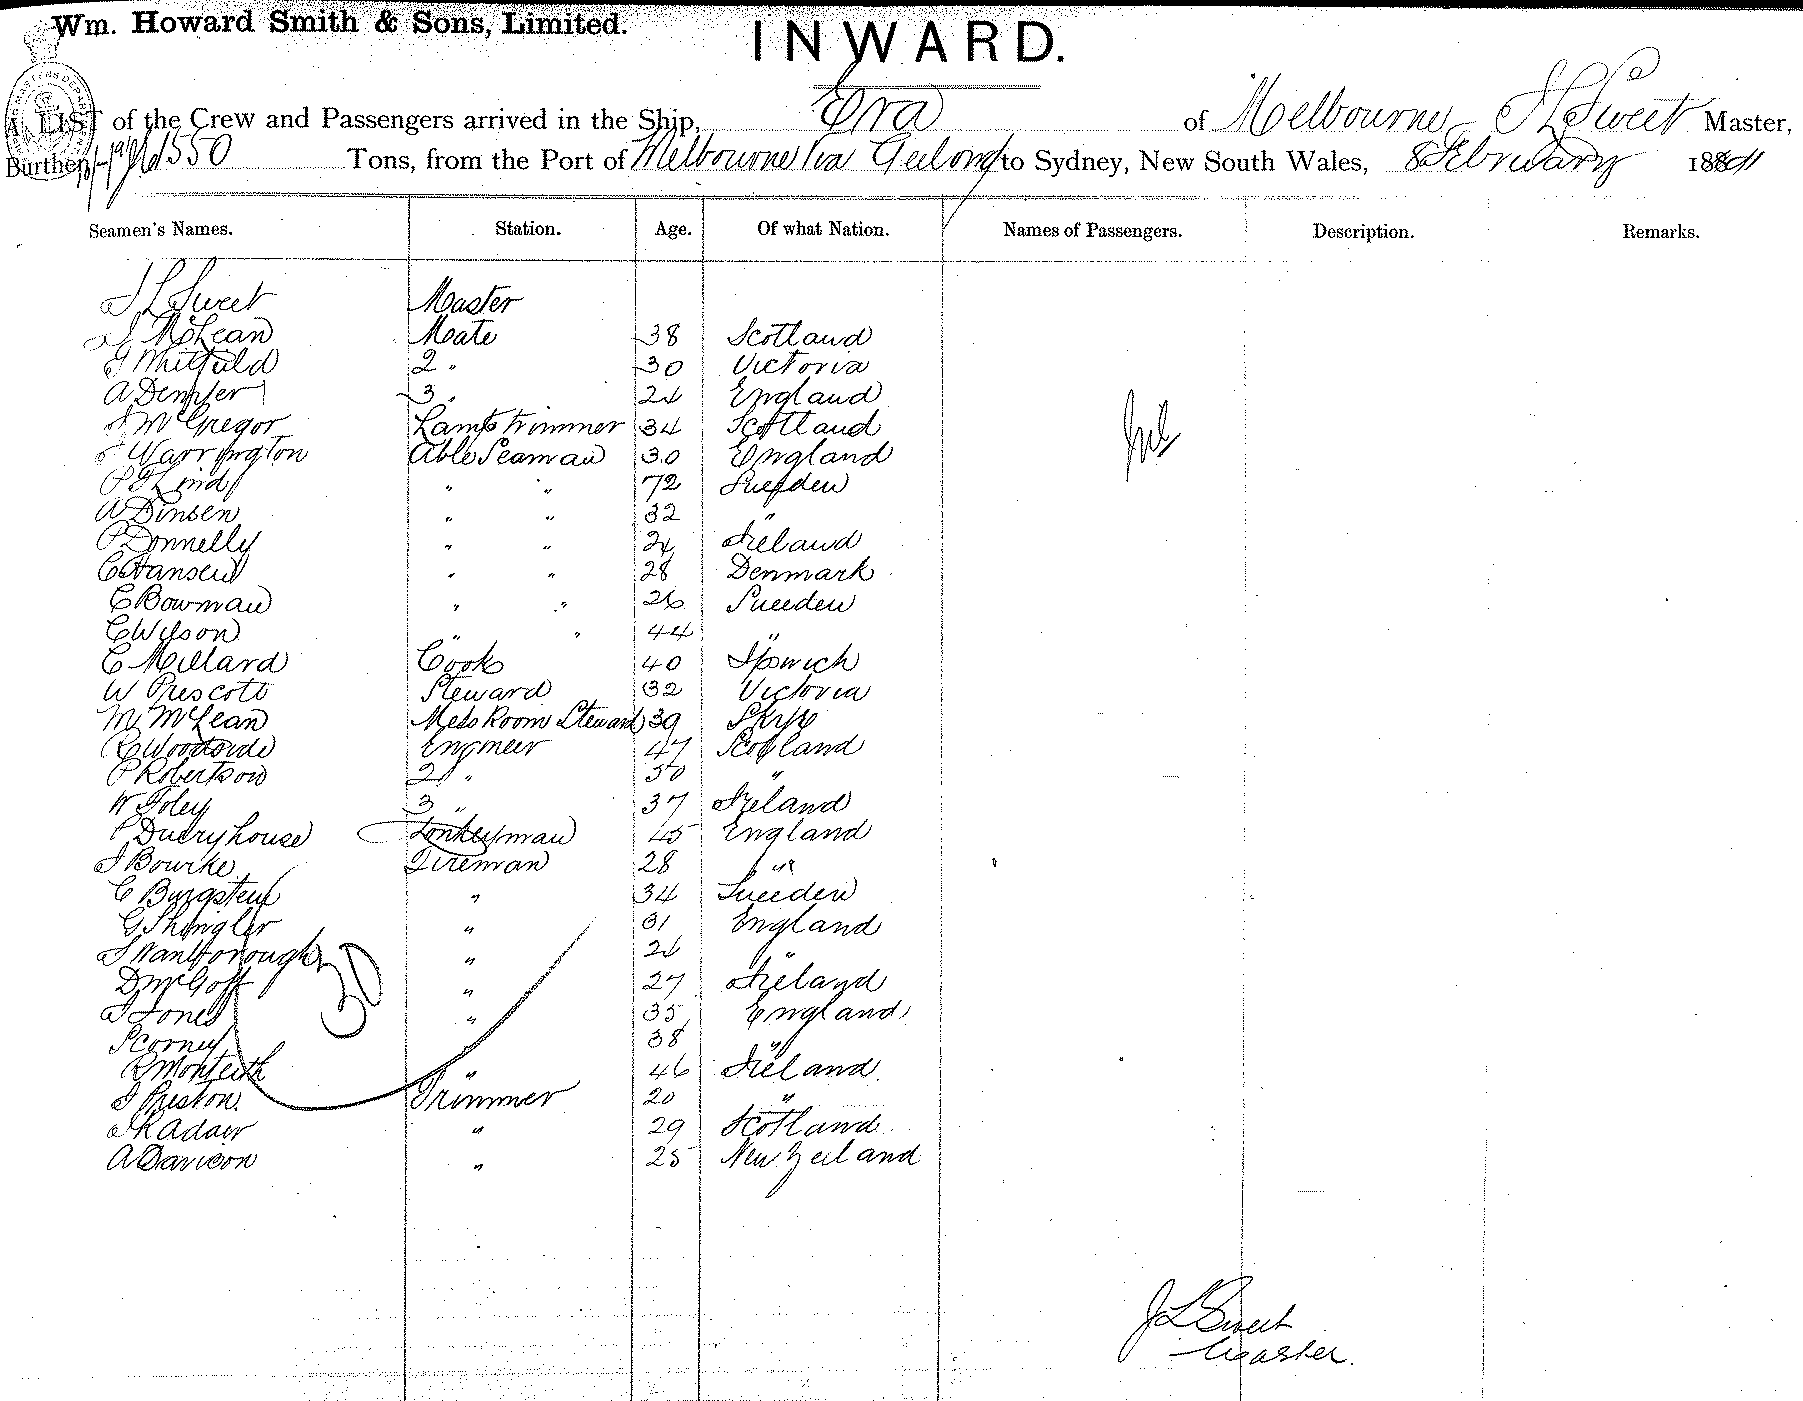 Wm. Howard Smith & Sons, Limited.
INWARD.
A LIST of the Crew and Passengers arrived in the Ship, Era of Melbourne J L Sweet Master,
Burthen 1550 Tons, from the Port of Melbourne via Geelong to Sydney, New South Wales, 8 February 18
Seamen's Names. Station. Age. Of what Nation. Names of Passengers. Description. Remarks.
J L Sweet Master
J McLean Mate 38 Scotland
G Whitfield 2 " 30 Victoria
A Dempster 3 " 24 England
J McGregor Lamp trimmer 34 Scotland Nil
J Warrington Able Seaman 30 England
P Lind " " 72 Sueeden
A Dinsen " " 32 "
P Donnelly " " 24 Ireland
C Hansen " " 28 Denmark
C Bowman " " 26 Sueeden
C Wilson " " 44 "
C Millard Cook 40 Ipswich
W Prescott Steward 32 Victoria
M McLean Mess Room Steward 39 Skye
R Woodside Engineer 47 Scotland
P Robertson 2 " 50 "
W Foley 3 " 37 Ireland
P Dueryhouse Donkeyman 45 England
J Bourke Fireman 28 "
C Burgstein " 34 Sueeden
G Shingler " 31 England
J Wanborough " 26 "
D McGoff " 27 Ireland
J Jones " 35 England
P Corney " 38 "
R Monteith " 46 Ireland
J Preston Trimmer 20 "
J R Adair " 29 Scotland
A Davison " 25 New Zeeland
30
J L Sweet
Master.